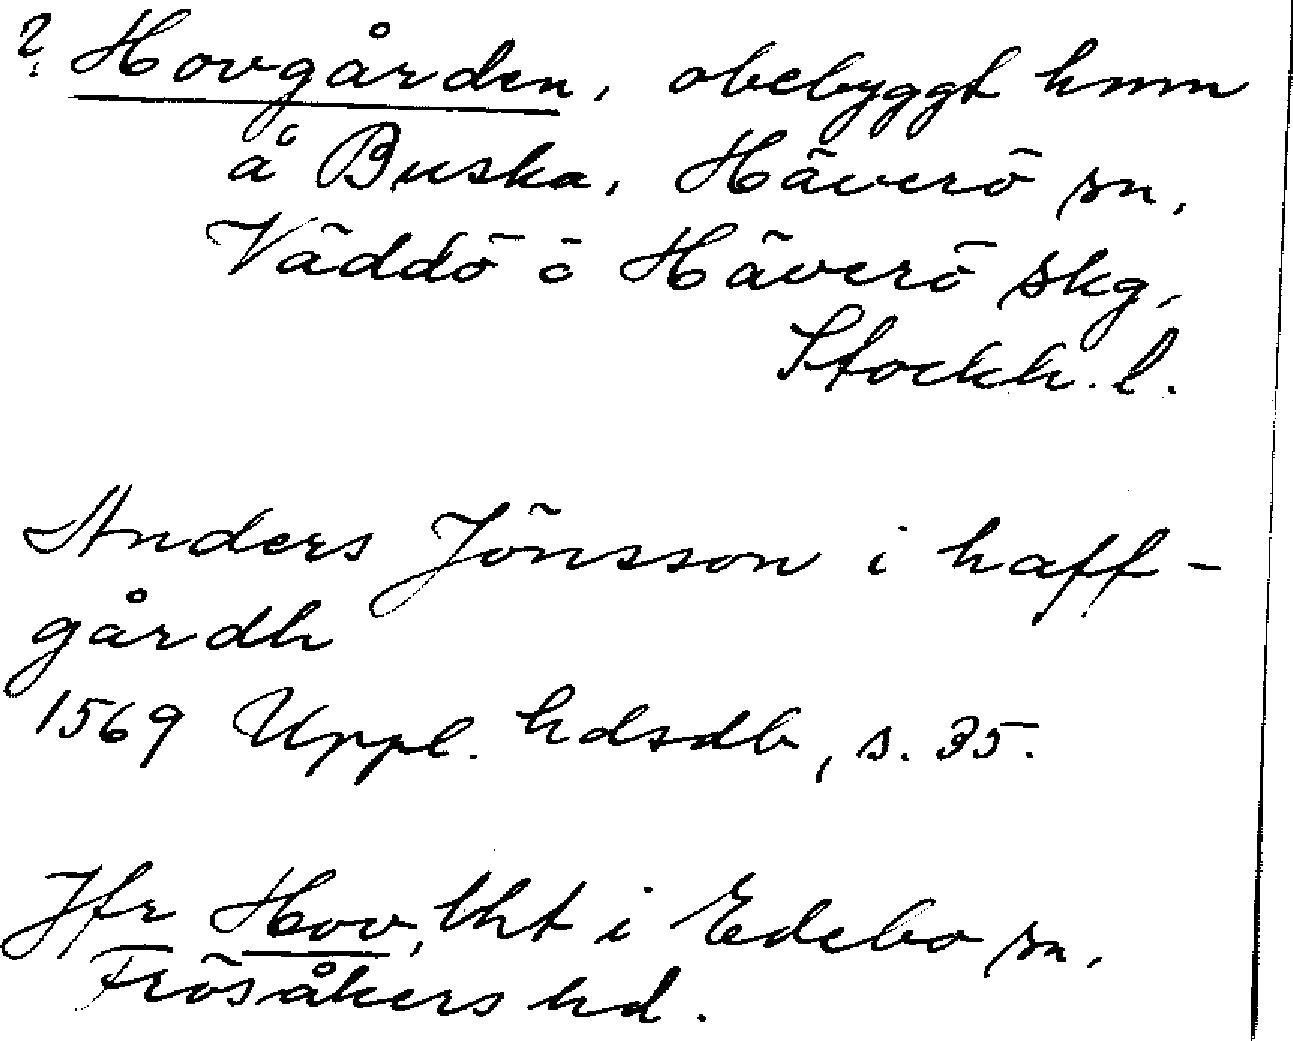 ? Hovgården, obebyggt hmn
å Buska, Häverö sn,
Väddö ö Häverö skg,
Stockh. l.
Anders Jönsson i haff-
gårdh
1569 Uppl. hdsdb, s. 35.
Jfr Hov, tht i Edebo sn,
Frösåkers hd.